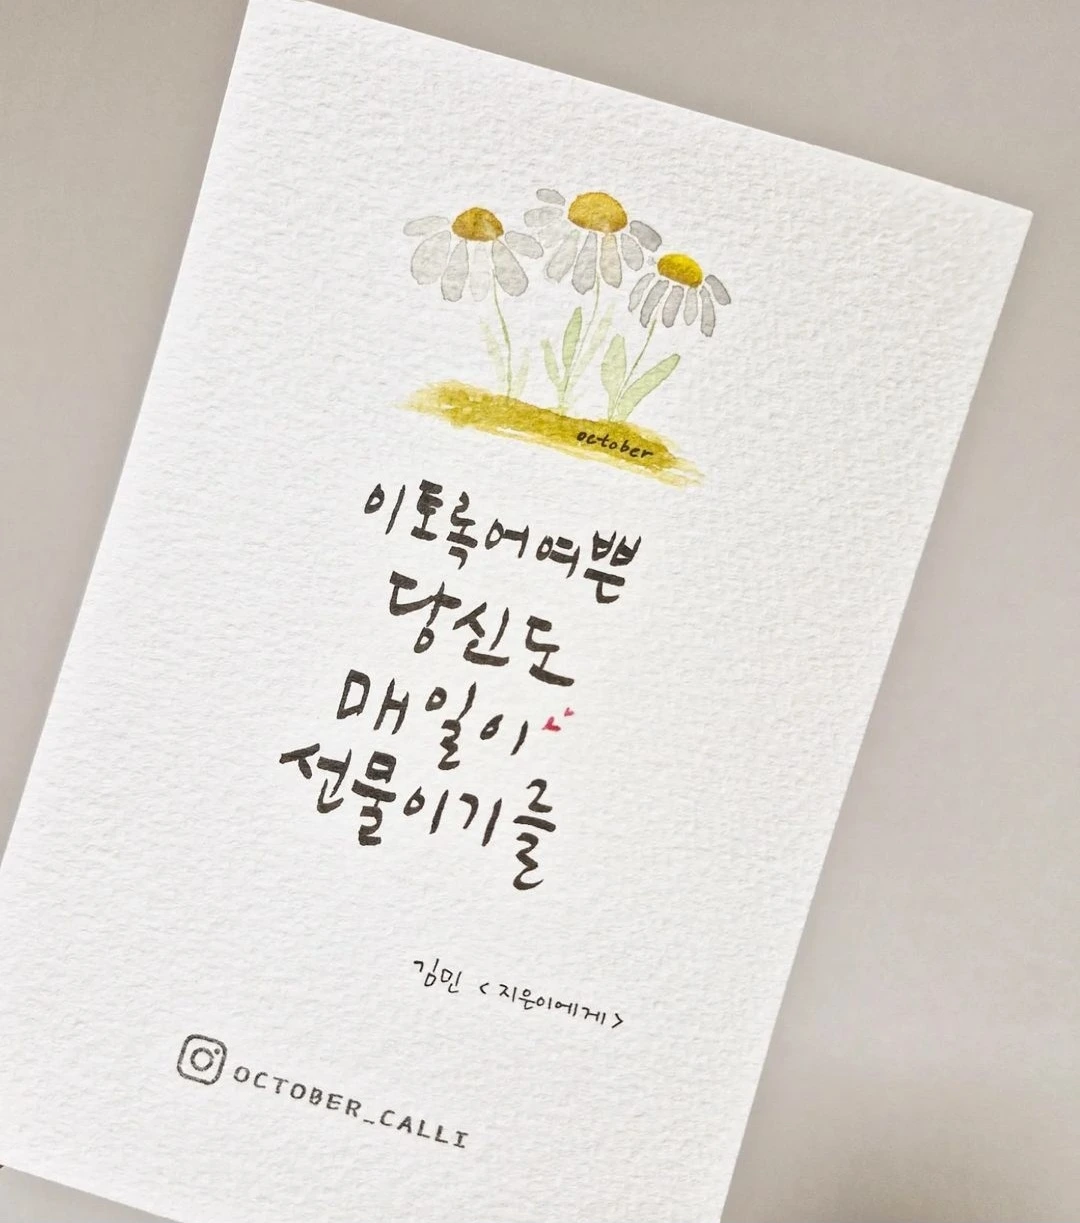 october
이토록 어여쁜
당신도
매일이
선물이기를
김민 <지은이에게>
OCTOBER_CALLI